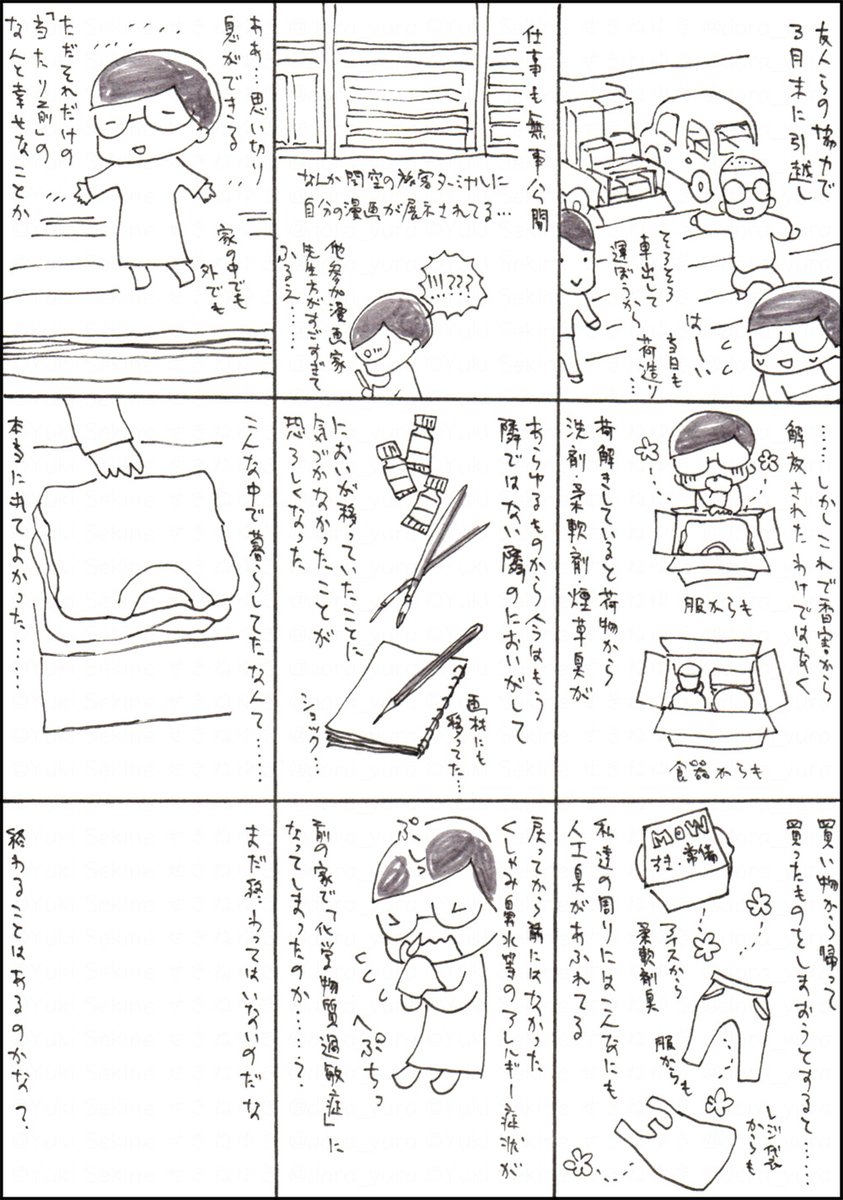 友人らの協力で
3月末に引越し
そろそろ
車出して
運ぼうから
当日も
荷造り…
はーい
仕事も無事公開
なんか関空の旅客ターミナルに
自分の漫画が展示されてる…
!!!???
他参加漫画家
先生方がすごすぎて
ふるえ……
ああ…思い切り
息ができる
ただそれだけの
「当たり前」の
なんと幸せなことか
家の中でも
外でも
……しかしこれで香害から
解放されたわけではなく
服からも
荷解きしていると荷物から
洗剤・柔軟剤・煙草臭が
食器からも
あらゆるものから今はもう
隣ではない隣のにおいがして
においが移っていたことに
気づかなかったことが
恐ろしくなった
画材にも
移ってた…
ショック…
こんな中で暮らしてたなんて…
本当に出てよかった……
買い物から帰って
買ったものをしまおうとすると……
MOW
常備
アイスから
柔軟剤臭
服からも
レジ袋
からも
私達の周りにはこんなにも
人工臭があふれてる
戻ってから前にはなかった
くしゃみ鼻水等のアレルギー症状が
ぷしっ
へぷちっ
前の家で「化学物質過敏症」に
なってしまったのか……?
まだ終わってはいないのだな
終わることはあるのかな?